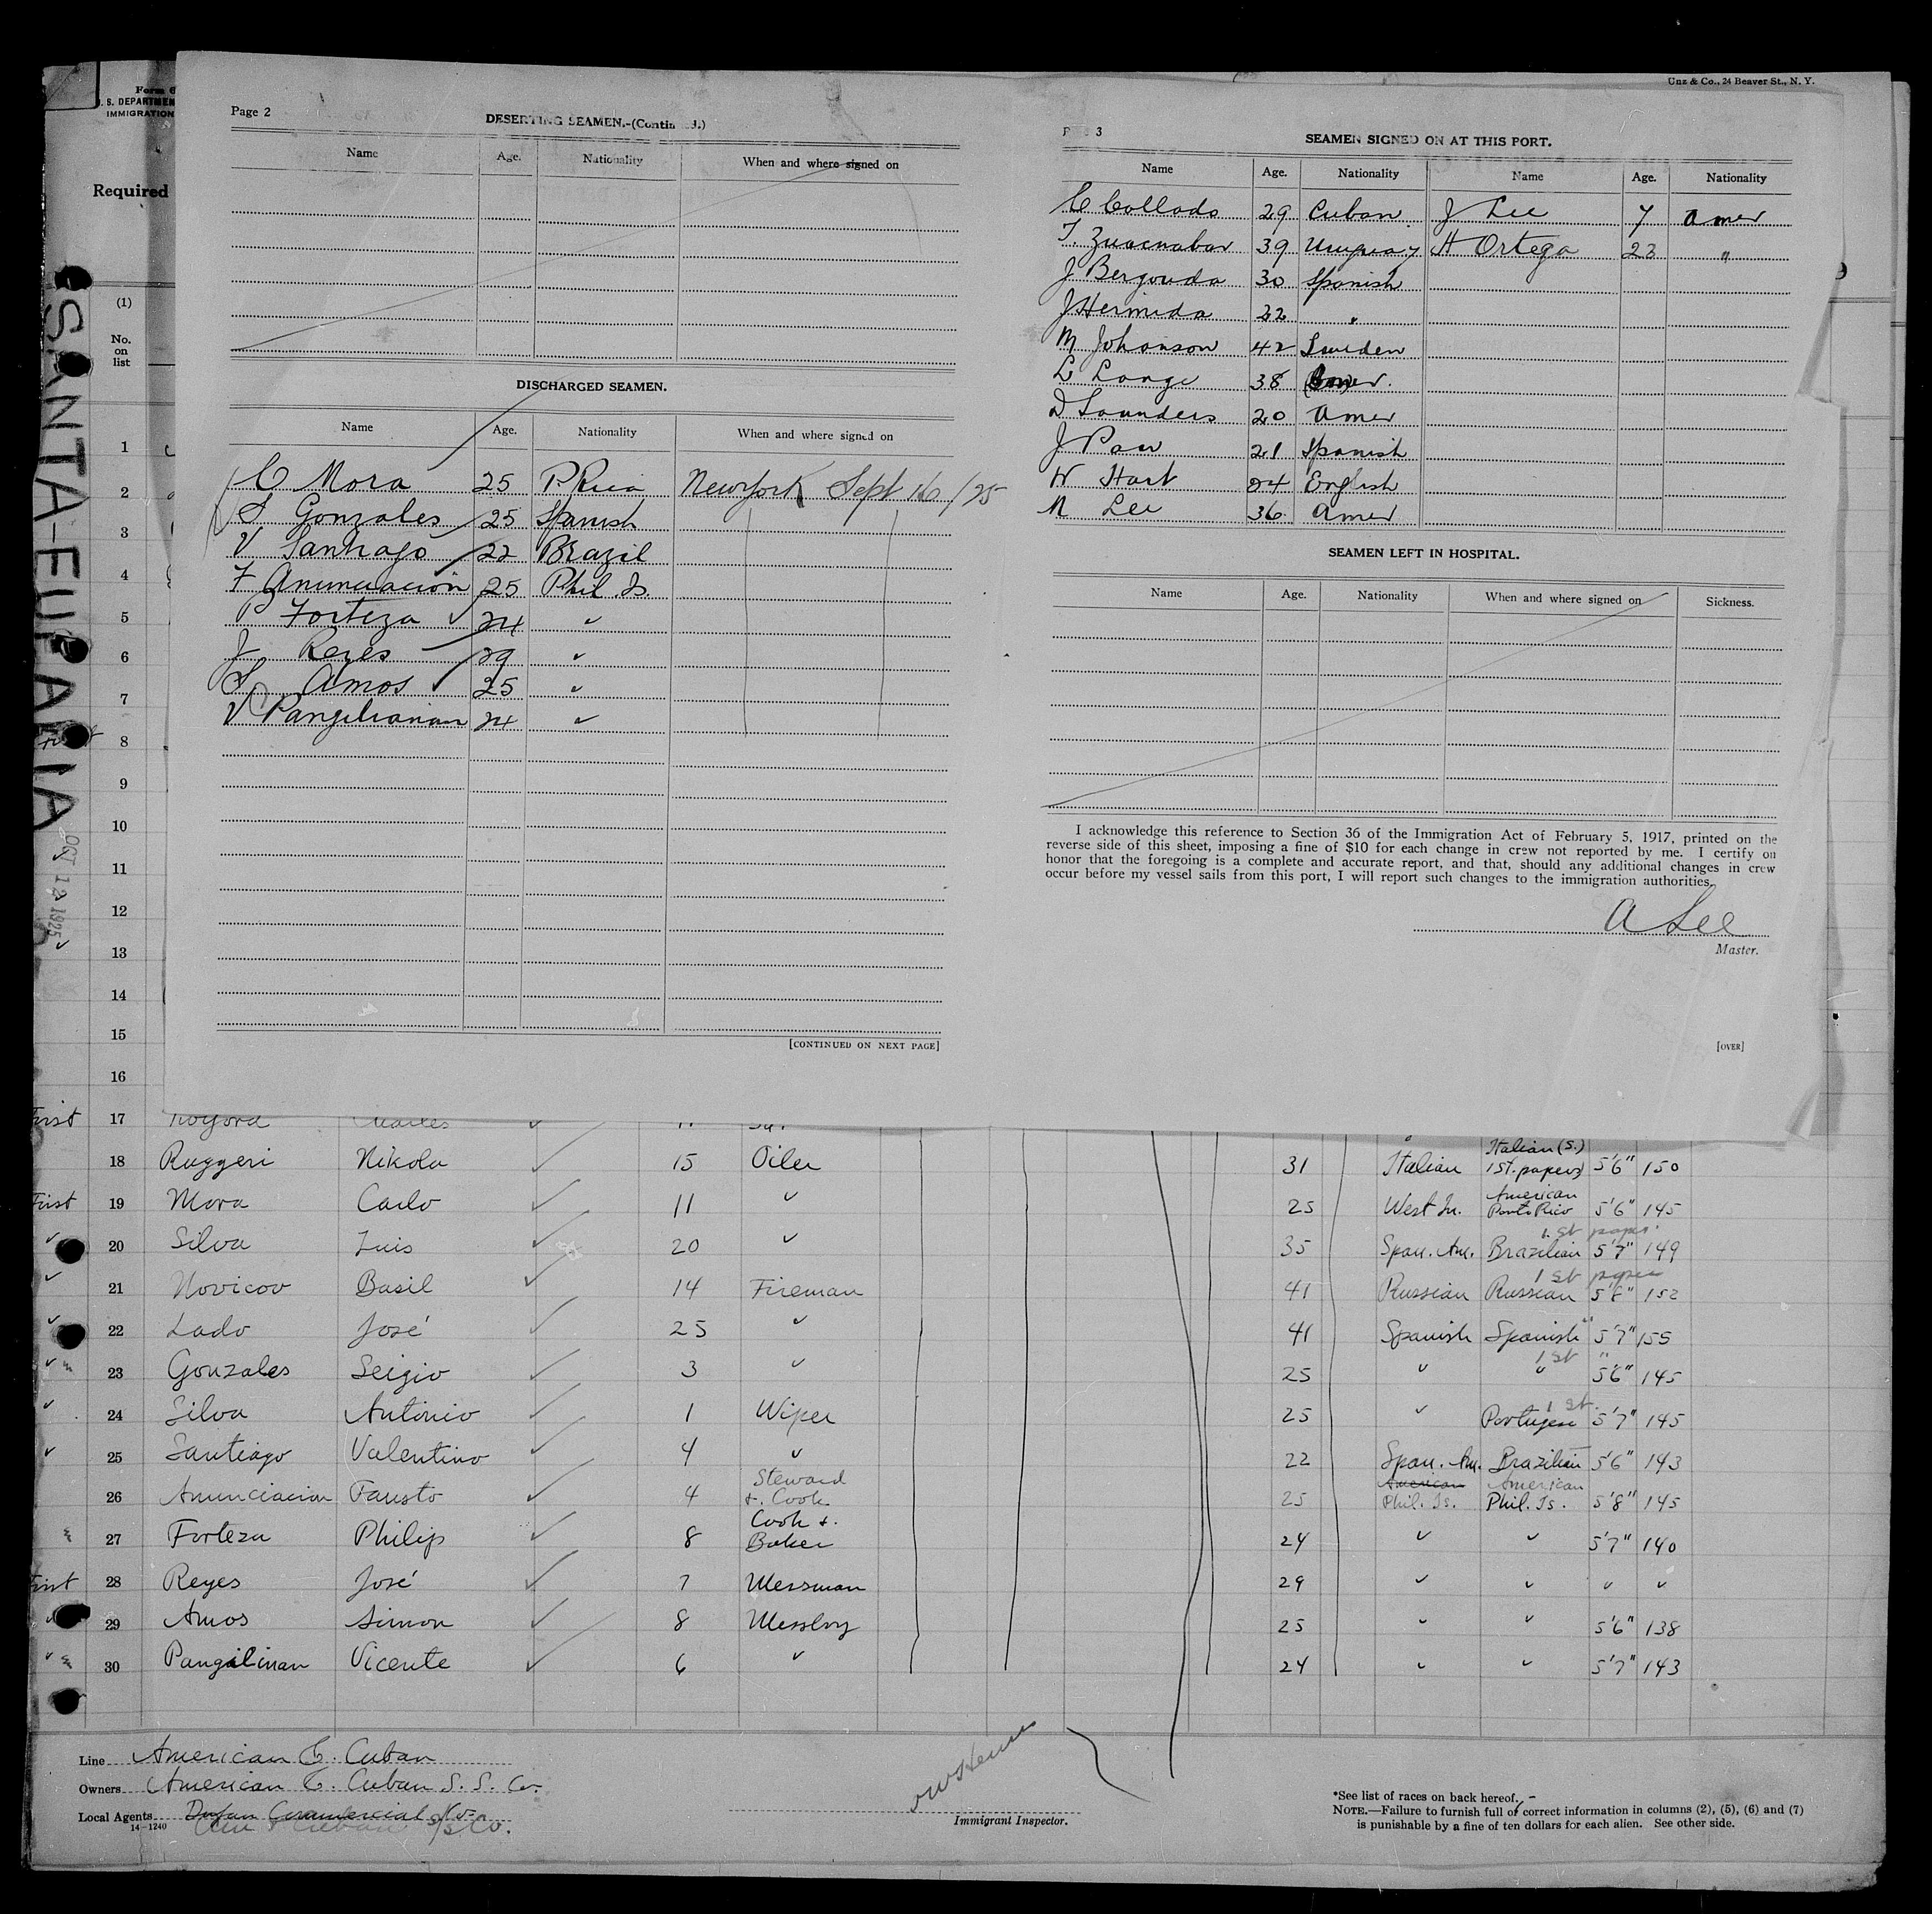 Unz & Co., 24 Beaver St., N. Y.
Form 6
S. DEPARTMEN
IMMIGRATION
Required
(1)
No.
on
list
SANTA-EUFALIA
OCT 12 1925
Page 2
DESERTING SEAMEN.-(Contin d.)
Name Age. Nationality When and where signed on
DISCHARGED SEAMEN.
Name Age. Nationality When and where signed on
C Mora 25 P. Rica New York Sept 16/25
S Gonzales 25 Spanish
V Santiago 22 Brazil
F Anunciacion 25 Phil Is.
P Forteza 24 "
J Reyes 29 "
S Amos 25 "
V Pangilianan 24 "
[CONTINUED ON NEXT PAGE]
P 3
SEAMEN SIGNED ON AT THIS PORT.
Name Age. Nationality Name Age. Nationality
C Collado 29 Cuban J Lee 7 Amer
T. 39 Uruguay H Ortega 23 "
J 30 Spanish
J Hermida 22 "
M Johanson 42 Sweden
L Lange 38
D Saunders 20 Amer
J 21 Spanish
W Hart 24 English
N Lee 36 Amer
SEAMEN LEFT IN HOSPITAL.
Name Age. Nationality When and where signed on Sickness.
I acknowledge this reference to Section 36 of the Immigration Act of February 5, 1917, printed on the
reverse side of this sheet, imposing a fine of $10 for each change in crew not reported by me. I certify on
honor that the foregoing is a complete and accurate report, and that, should any additional changes in crew
occur before my vessel sails from this port, I will report such changes to the immigration authorities.
A Lee
Master.
[OVER]
1
2
3
4
5
6
7
8
9
10
11
12
13
14
15
16
First 17
18 Ruggeri Nikola 15 Oiler 31 Italian Italian (S.) 1st. papers) 5'6" 150
First 19 Mora Carlo 11 " 25 West In. American Porto Rico 5'6" 145
20 Silva Luis 20 " 35 Span. Am. Brazilian 1 st paper 5'7" 149
21 Novicov Basil 14 Fireman 41 Russian Russian 1 st paper 5'8" 152
22 Lado José 25 " 41 Spanish Spanish " 5'7" 155
23 Gonzales Seigio 3 " 25 " " 1 st " 5'6" 145
24 Silva Antonio 1 Wiper 25 " Portugese 1 st. 5'7" 145
25 Santiago Valentino 4 " 22 Span. Am. Brazilian 5'6" 143
26 Anunciacion Fausto 4 Steward + Cook 25 American Phil. Is. American Phil. Is. 5'8" 145
27 Forteza Philip 8 Cook + Baker 24 " " 5'7" 140
First 28 Reyes José 7 Messman 29 " " " "
29 Amos Simon 8 Messboy 25 " " 5'6" 138
30 Pangilinan Vicente 6 " 24 " " 5'7" 143
Line American & Cuban
Owners American & Cuban S. S. Co.
Local Agents Commercial Co
Am & Cuban S/S Co.
14-1240
Immigrant Inspector.
*See list of races on back hereof.
NOTE.—Failure to furnish full or correct information in columns (2), (5), (6) and (7)
is punishable by a fine of ten dollars for each alien. See other side.